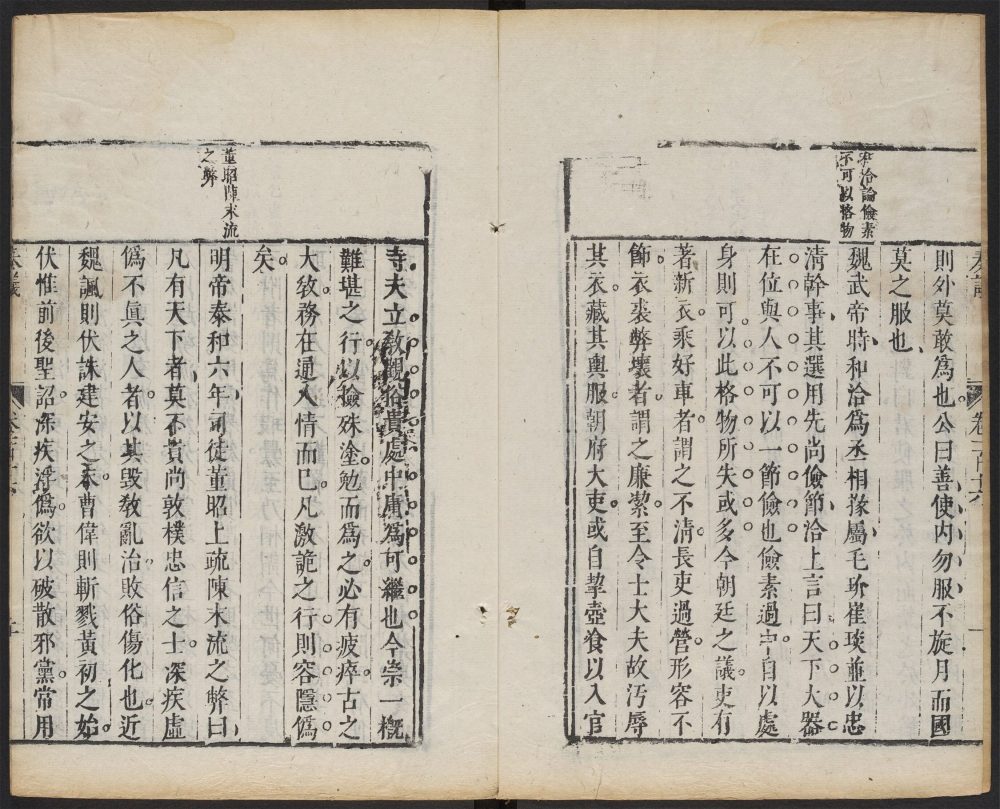 則外莫敢爲也公曰善使內勿服不旋月而國
莫之服也
和洽論儉素
不可以格物
魏武帝時和洽爲丞相掾屬毛玠崔琰並以忠
淸幹事其選用先尚儉節洽上言曰天下大器
在位與人不可以一節儉也儉素過中自以處
身則可以此格物所失或多今朝廷之議吏有
著新衣乘好車者謂之不淸長吏過營形容不
飾衣裘弊壞者謂之廉潔至令士大夫故汚辱
其衣藏其輿服朝府大吏或自挈壺飡以入官
寺夫立敎觀俗貴處中庸爲可繼也今崇一槪
難堪之行以檢殊塗勉而爲之必有疲瘁古之
大敎務在通人情而巳凡激詭之行則容隱僞
矣
董昭陳末流
之弊
明帝泰和六年司徒董昭上疏陳末流之弊曰
凡有天下者莫不貴尚敦樸忠信之士深疾虛
僞不眞之人者以其毀敎亂治敗俗傷化也近
魏諷則伏誅建安之末曹偉則斬戮黃初之始
伏惟前後聖詔深疾浮僞欲以破散邪黨常用